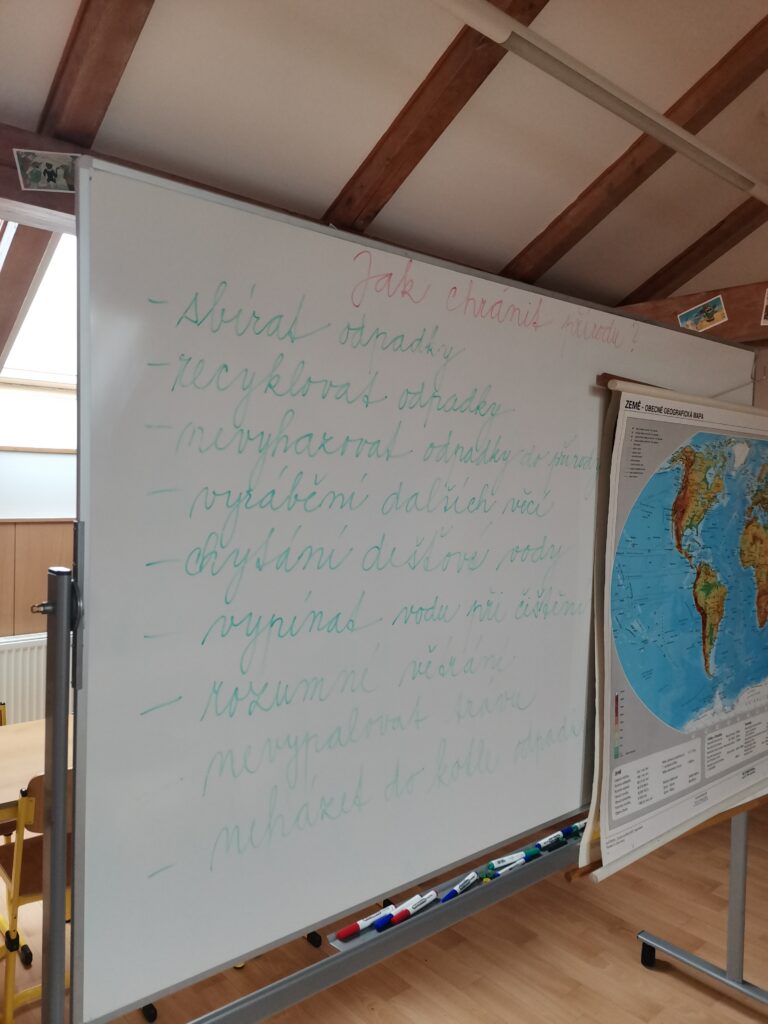 Jak chránit přírodu?
- sbírat odpadky
- recyklovat odpadky
- nevyhazovat odpadky do přírody
- vyrábění dalších věcí
- chytání dešťové vody
- vypínat vodu při čištění
- rozumné větrání
- nevypalovat trávu
- neházet do kotle odpadky
ZEMĚ - OBECNĚ GEOGRAFICKÁ MAPA